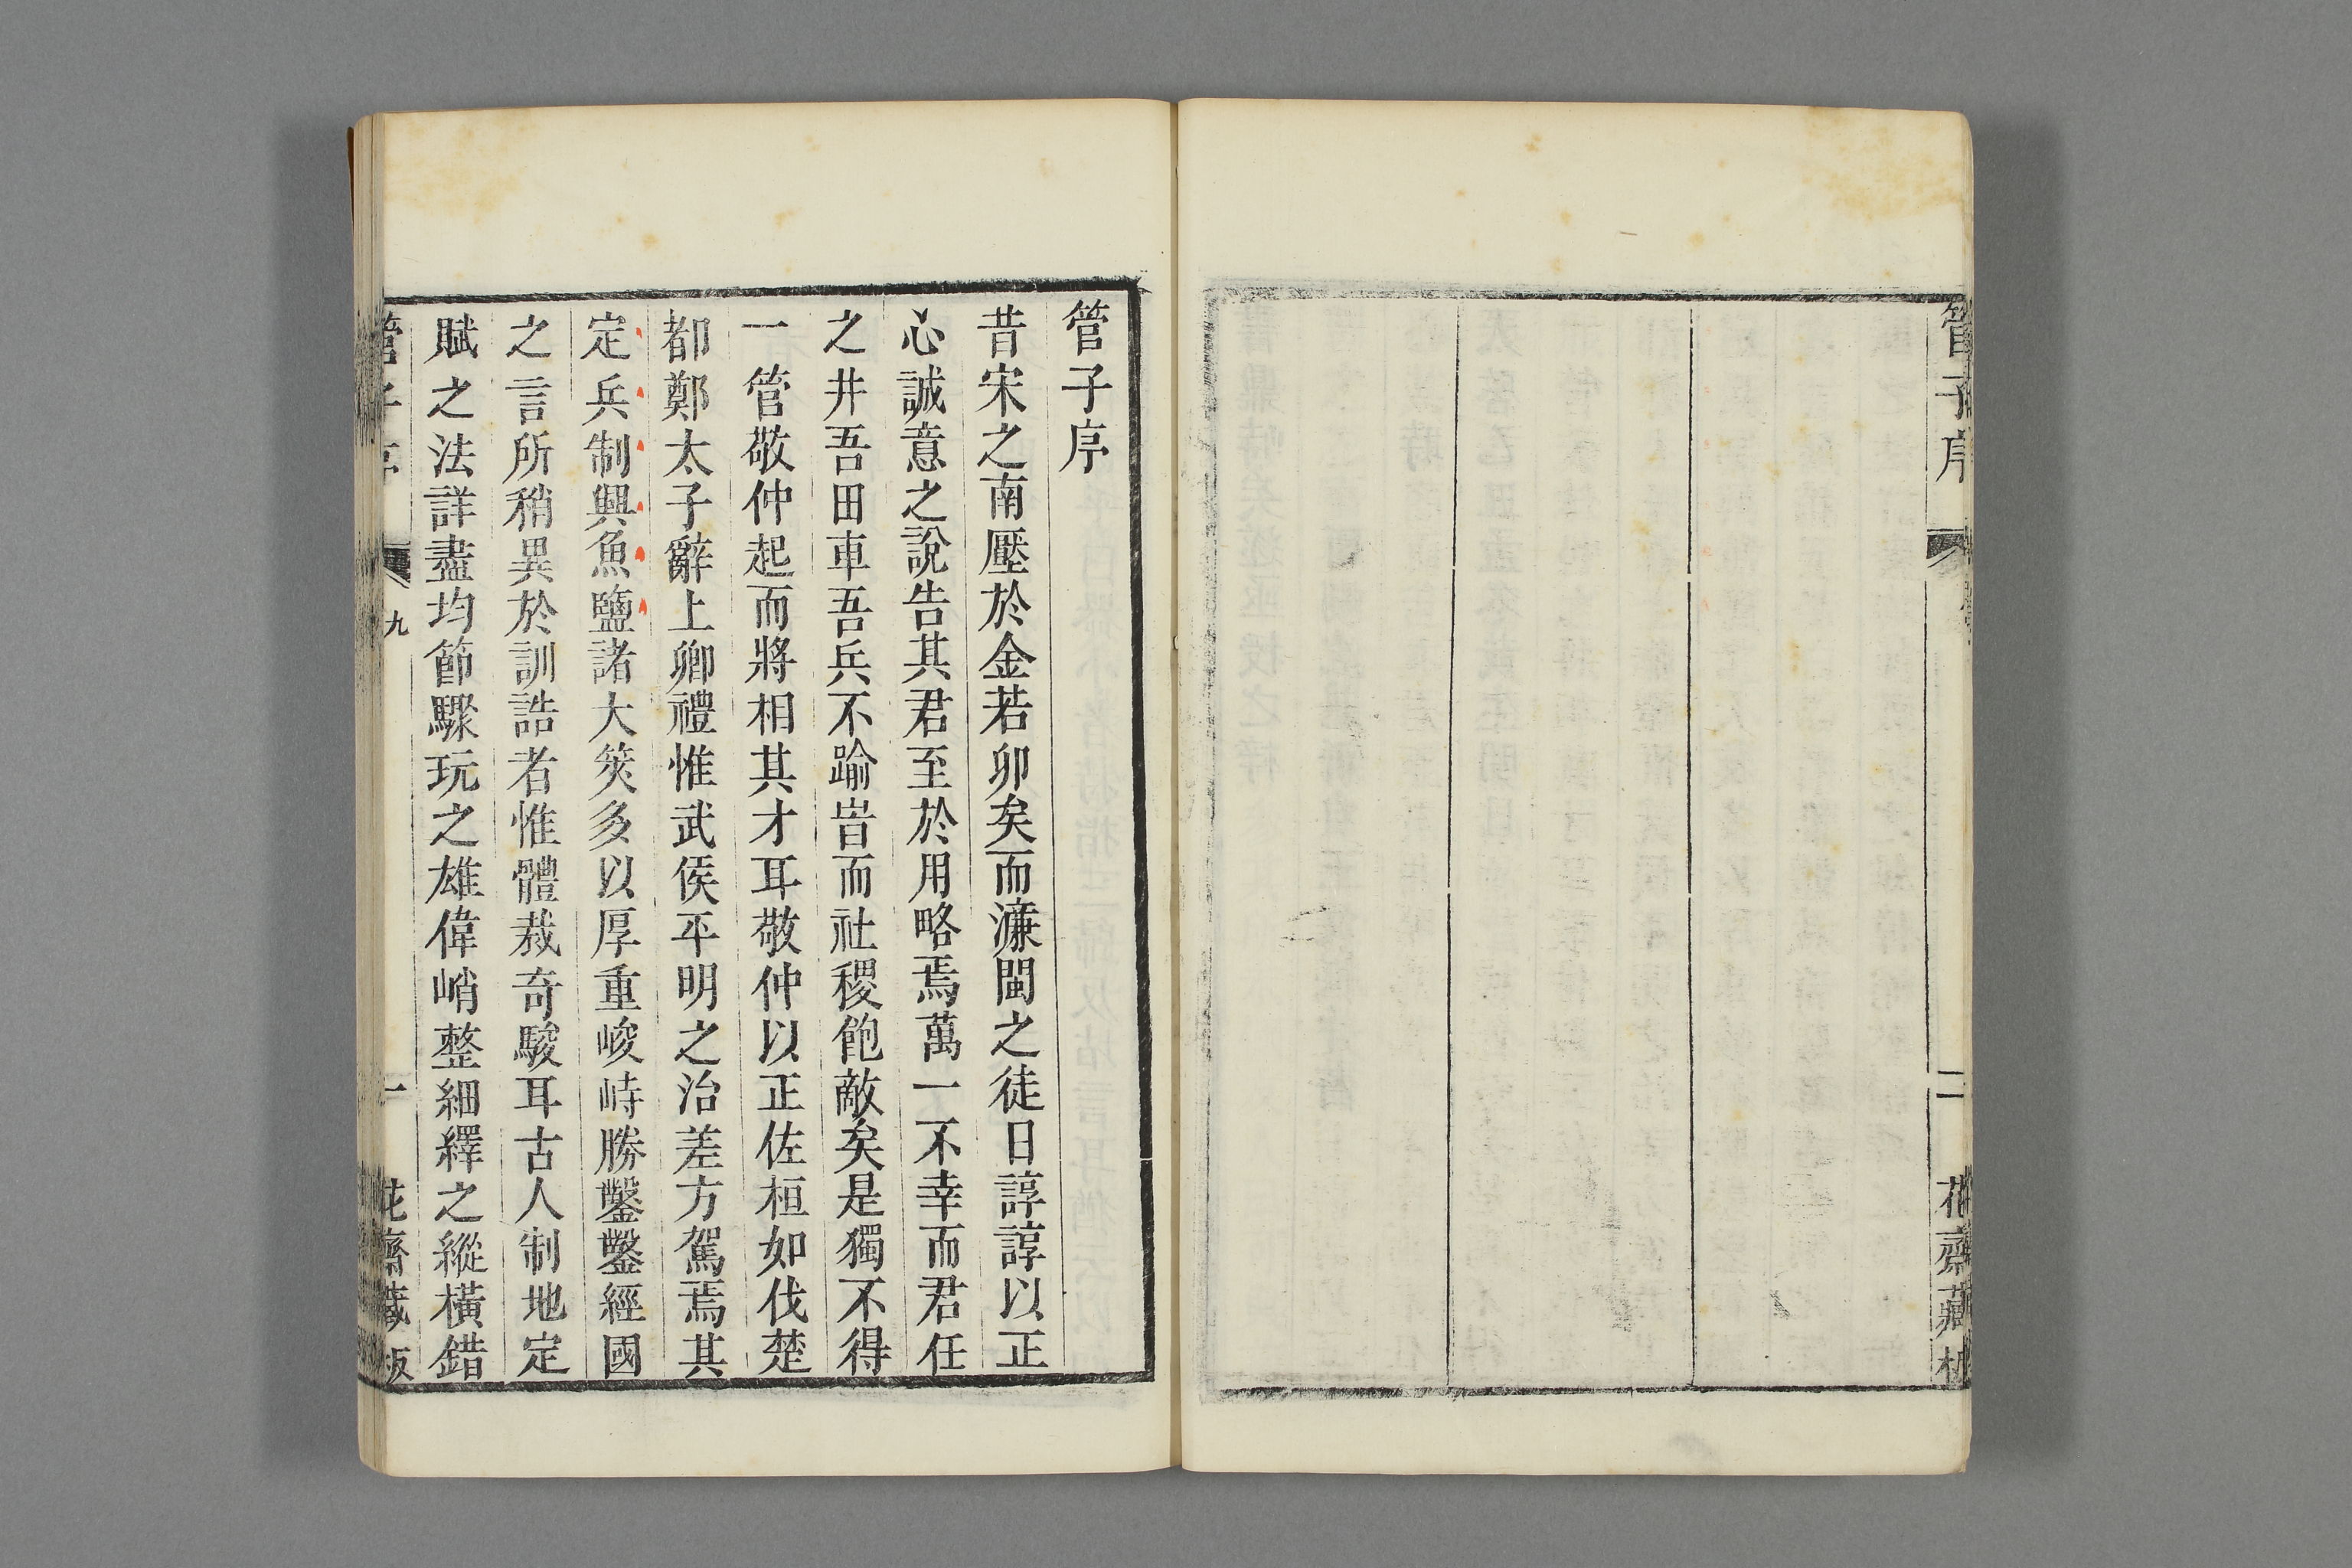 管子序
二
花齋藏板
管子序
昔宋之南壓於金若卵矣而濂閩之徒日諄諄以正
心誠意之說告其君至於用略焉萬一不幸而君任
之井吾田車吾兵不踰岧而社稷飽敵矣是獨不得
一管敬仲起而將相其才耳敬仲以正佐桓如伐楚
都鄭太子辭上卿禮惟武侯平明之治差方駕焉其
定兵制興魚鹽諸大筴多以厚重峻峙勝鑿鑿經國
之言所稍異於訓誥者惟體裁奇駿耳古人制地定
賦之法詳盡均節驟玩之雄偉峭整細繹之縱橫錯
管子序
九
一
花齋藏板